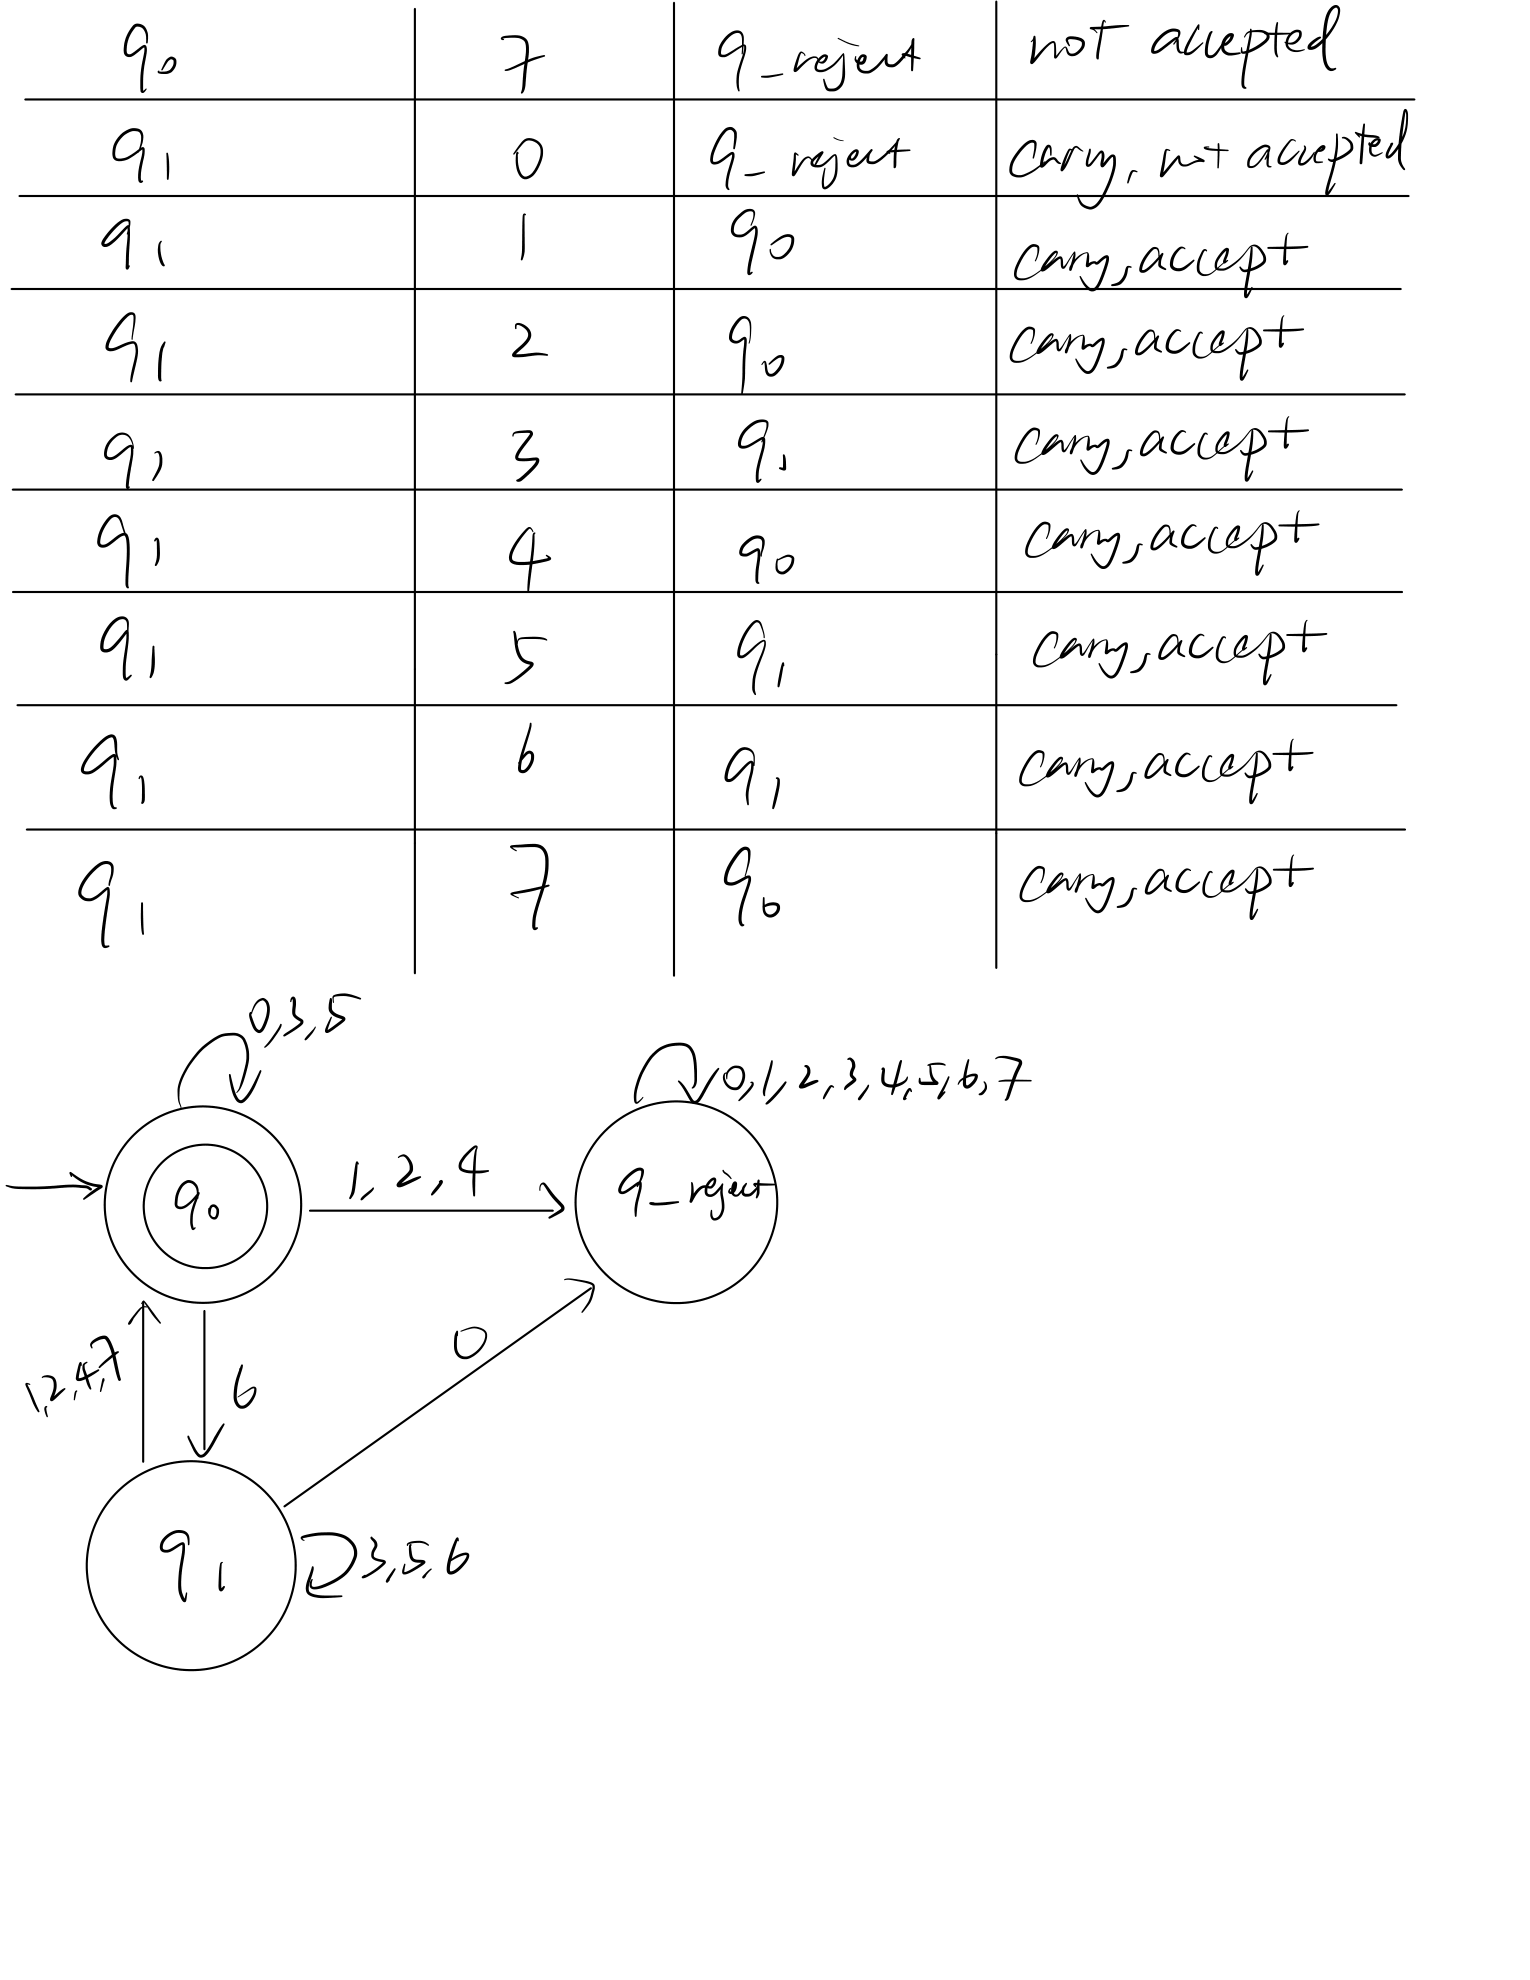 q0 7 q_reject not accepted
q1 0 q_reject carry, not accepted
q1 1 q0 carry, accept
q1 2 q0 carry, accept
q1 3 q1 carry, accept
q1 4 q0 carry, accept
q1 5 q1 carry, accept
q1 6 q1 carry, accept
q1 7 q0 carry, accept
0,3,5
0,1,2,3,4,5,6,7
1,2,4
q0
q_reject
0
1,2,4,7
6
q1
3,5,6